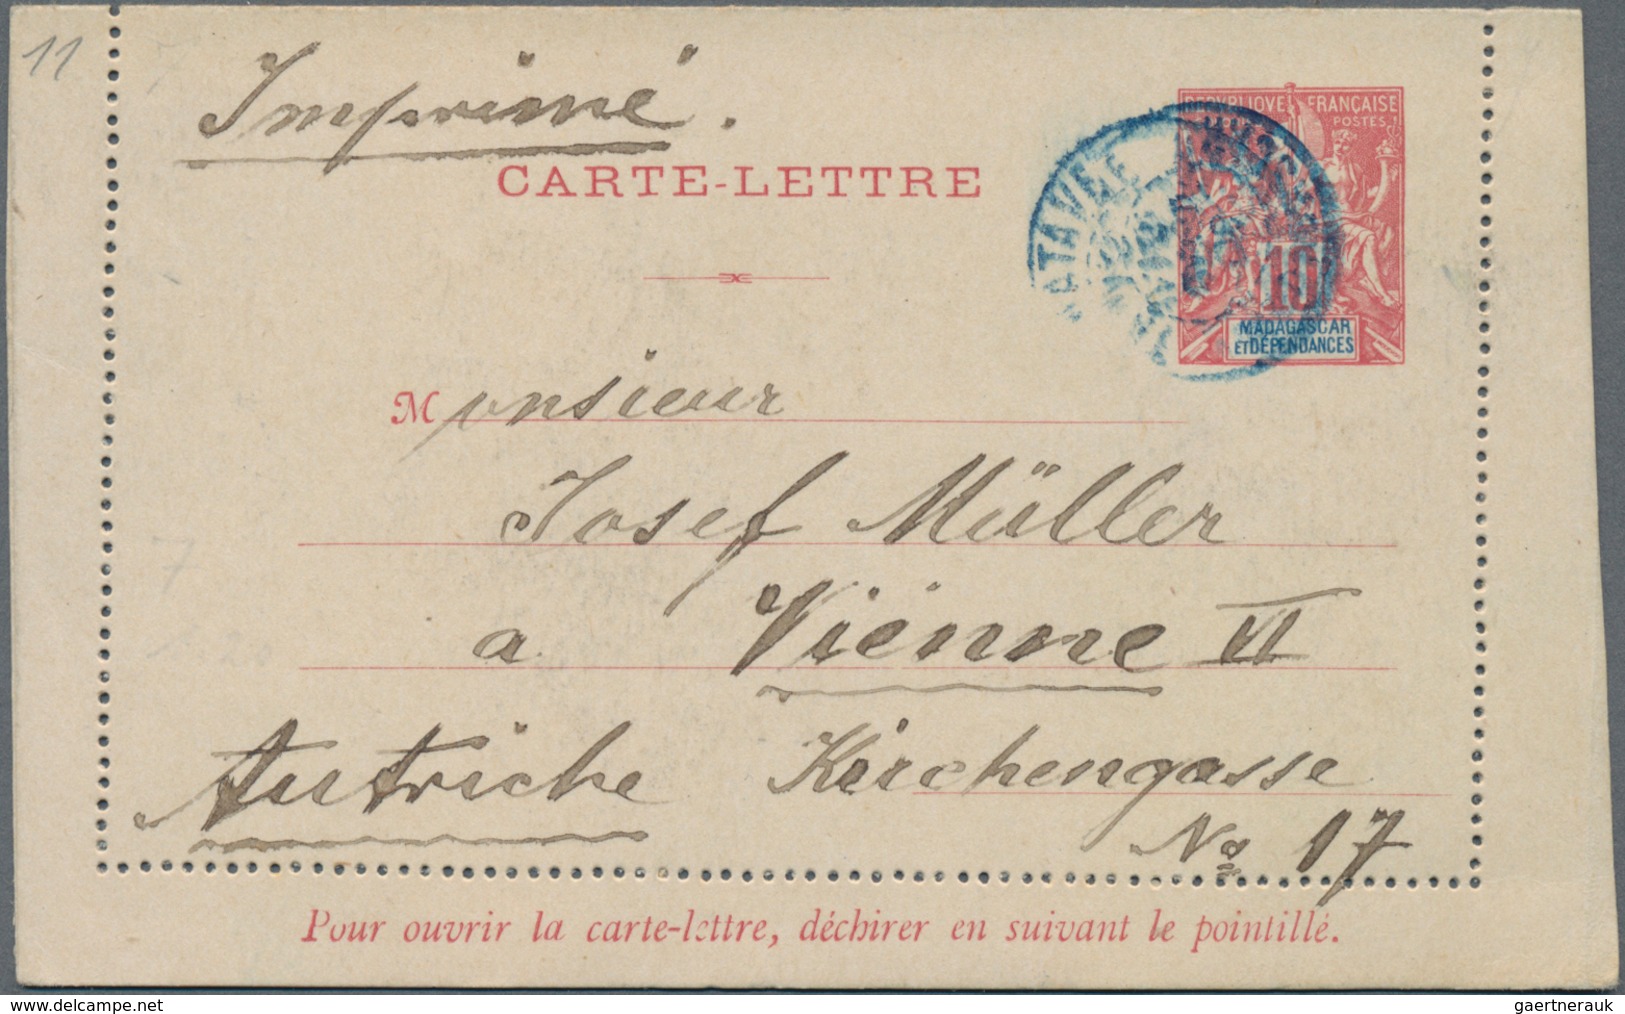 11
Imprimé.
CARTE-LETTRE
REPUBLIQUE FRANÇAISE
POSTES
10
MADAGASCAR
ET DÉPENDANCES
Monsieur
Josef Müller
a Vienne VI
Autriche Kirchengasse
No 17
Pour ouvrir la carte-lettre, déchirer en suivant le pointillé.
www.delcampe.net
gaertnerauk